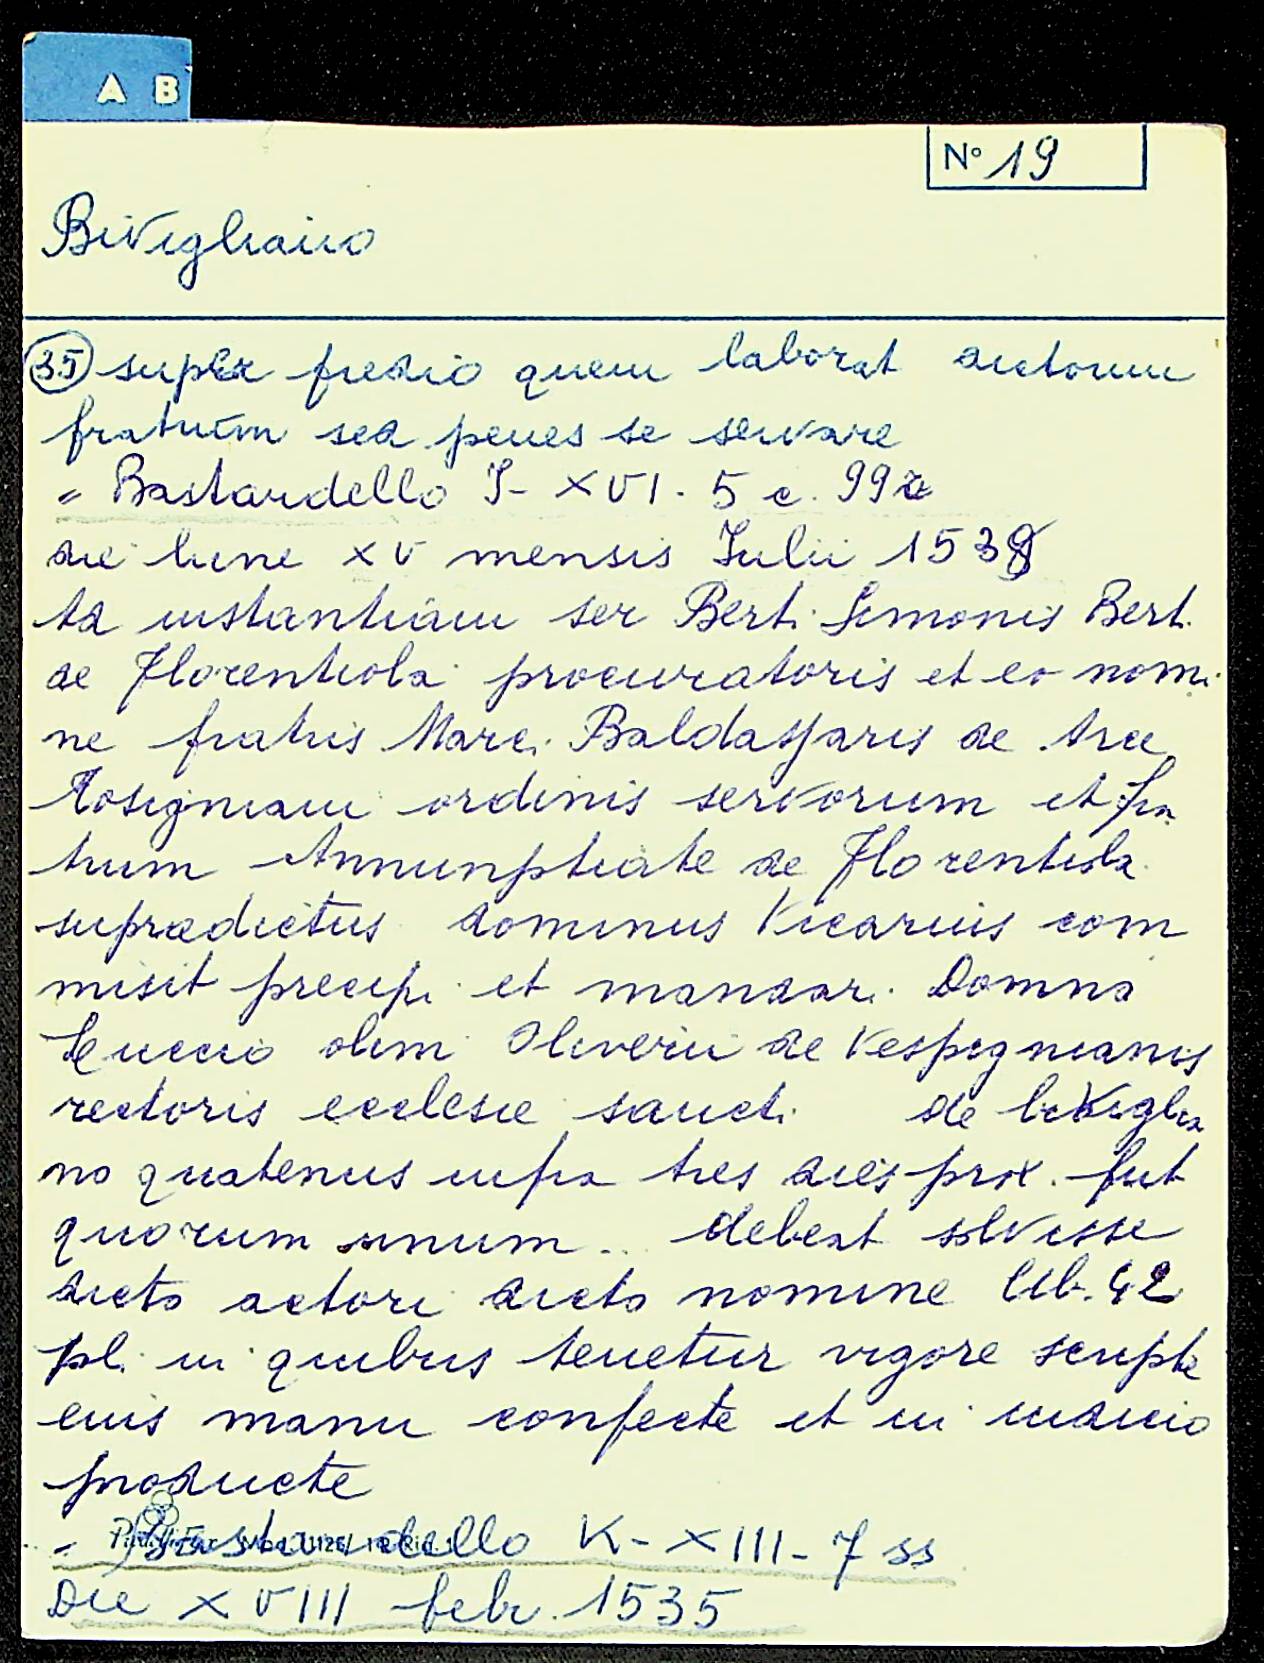 A B
N° 19
Bivigliano
35 super predio quem laborat dictorum
fratrum sed penes se servare
" Bastardello I - XVI. 5 c. 99
die lune XV mensis Julii 153
Ad instantiam ser Bert. Simonis Bert.
de Florentiola procuratoris et eo nomi
ne fratris Marci Baldassaris de Arce
ordinis servorum et fra
trum Annunptiate de Florentiola
supradictus dominus Vicarius com
misit precipi et mandari Domno
Luccio olim Oliverii de Vespignianis
rectoris ecclesie sancti de bivigla
no quatenus infra tres dies prox. fut
quorum unum .. debeat solvisse
dicto actori dicto nomine lib. 42
pl. in quibus tenetur vigore scripte
eius manu confecte et in iudicio
producte
" Bastardello K - XIII - 7 ss
Die XVIII febr. 1535